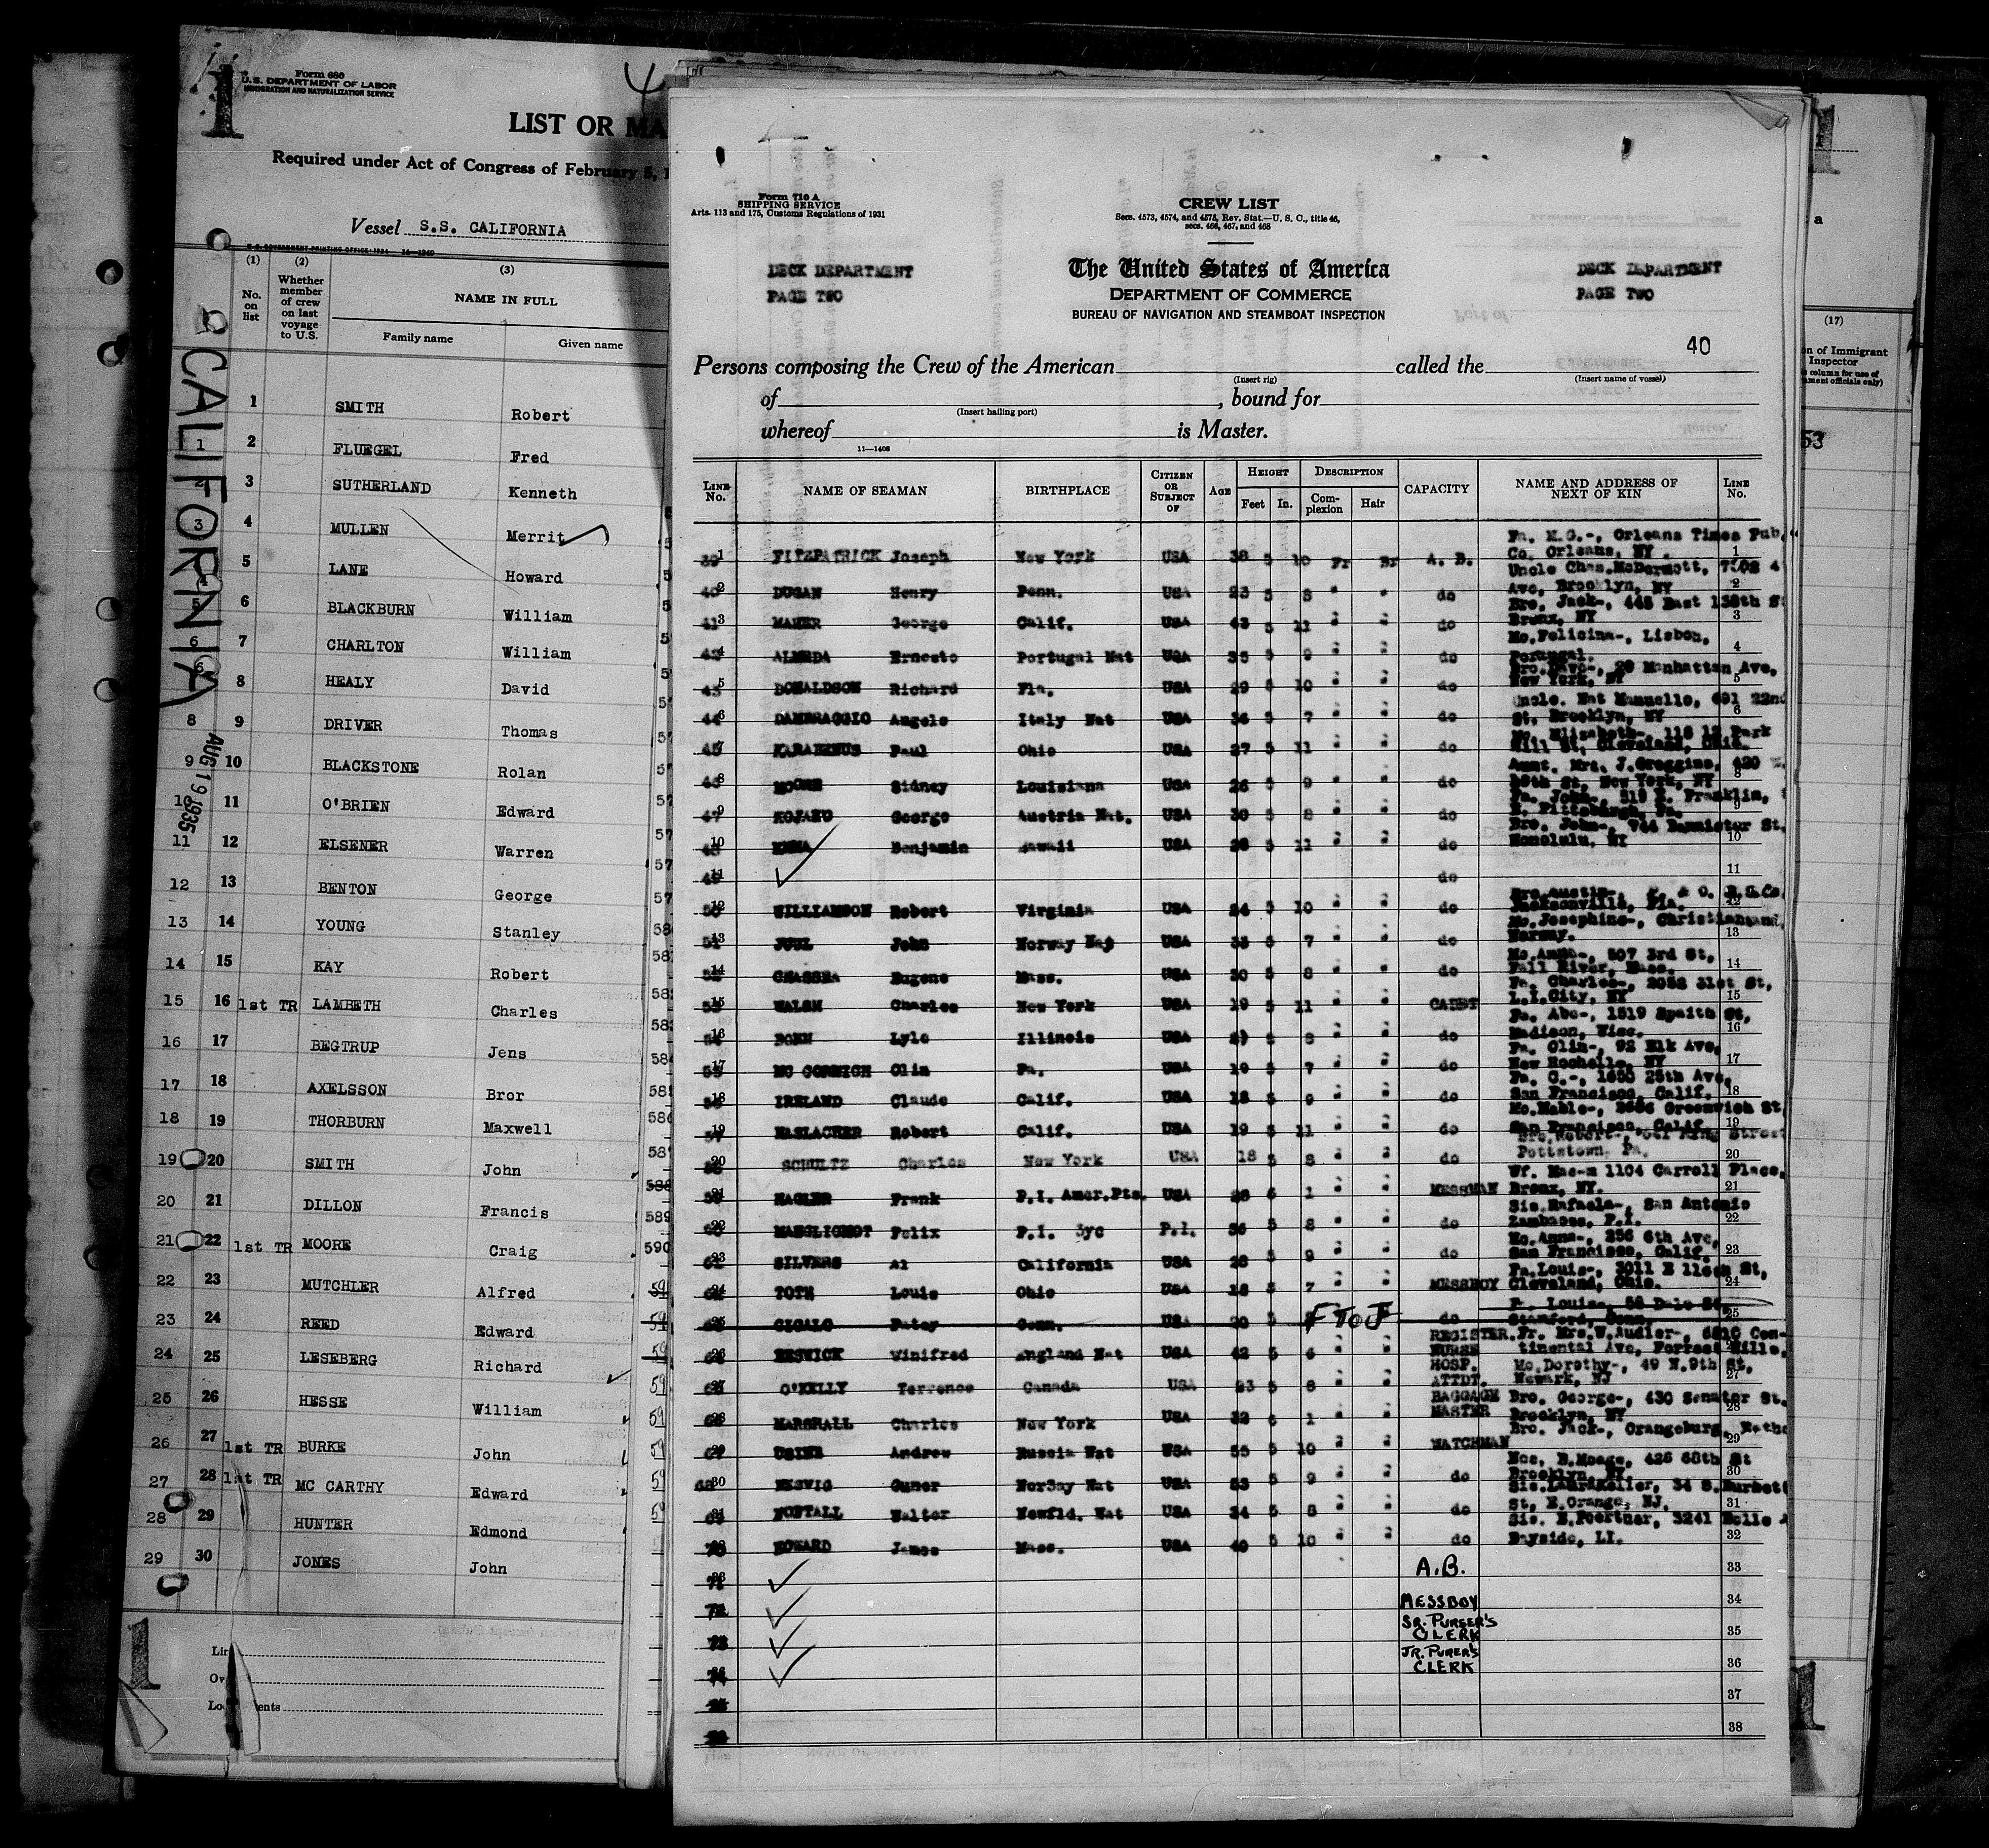 Form 680
U.S. DEPARTMENT OF LABOR
IMMIGRATION AND NATURALIZATION SERVICE
LIST OR MA
Required under Act of Congress of February 5, 1
Vessel S.S. CALIFORNIA
U.S. GOVERNMENT PRINTING OFFICE: 1934
(1) (2) (3)
No. on list
Whether member of crew on last voyage to U.S.
NAME IN FULL
Family name Given name
CALIFORNIA
AUG 19 1935
1 SMITH Robert
1 2 FLUEGEL Fred
2 3 SUTHERLAND Kenneth
3 4 MULLEN Merrit
4 5 LANE Howard
5 6 BLACKBURN William
6 7 CHARLTON William
8 HEALY David
8 9 DRIVER Thomas
9 10 BLACKSTONE Rolan
10 11 O'BRIEN Edward
11 12 ELSENER Warren
12 13 BENTON George
13 14 YOUNG Stanley
14 15 KAY Robert
15 16 1st TR LAMBETH Charles
16 17 BEGTRUP Jens
17 18 AXELSSON Bror
18 19 THORBURN Maxwell
19 20 SMITH John
20 21 DILLON Francis
21 22 1st TR MOORE Craig
22 23 MUTCHLER Alfred
23 24 REED Edward
24 25 LESEBERG Richard
25 26 HESSE William
26 27 1st TR BURKE John
27 28 1st TR MC CARTHY Edward
28 29 HUNTER Edmond
29 30 JONES John
Form 710 A
SHIPPING SERVICE
Arts. 113 and 175, Customs Regulations of 1931
CREW LIST
Secs. 4573, 4574, and 4575, Rev. Stat.—U. S. C., title 46,
secs. 466, 467, and 468
DECK DEPARTMENT The United States of America DECK DEPARTMENT
PAGE TWO DEPARTMENT OF COMMERCE PAGE TWO
BUREAU OF NAVIGATION AND STEAMBOAT INSPECTION
40
Persons composing the Crew of the American called the
(Insert rig) (Insert name of vessel)
of , bound for
(Insert hailing port)
whereof is Master.
11—1406
LINE No. NAME OF SEAMAN BIRTHPLACE CITIZEN OR SUBJECT OF AGE HEIGHT Feet In. DESCRIPTION Complexion Hair CAPACITY NAME AND ADDRESS OF NEXT OF KIN LINE No.
1 FITZPATRICK Joseph New York USA 38 5 10 Fr Br A. B. Fa. M.G.-, Orleans Times Pub. Co. Orleans, NY. 1
2 DUGAN Henry Penn. USA 23 5 8 " " do Uncle Chas. McDermott, Ave, Brooklyn, NY 2
3 MAHER George Calif. USA 43 5 11 " " do Bro. Jack-, 445 East 138th St Bronx, NY 3
4 ALMEDA Ernesto Portugal Nat USA 35 5 9 " " do Mo. Felicina-, Lisbon, Portugal. 4
5 DONALDSON Richard Fla. USA 29 5 10 " " do Bro. Dave-, 20 Manhattan Ave, New York, NY 5
6 DAMBRAGGIO Angelo Italy Nat USA 36 5 7 " " do Uncle. Nat Mannello, 22nd St, Brooklyn, NY 6
7 Paul Ohio USA 27 5 11 " " do Mo. Elizabeth-, Park Hill St, Cleveland, Ohio. 7
8 MOORE Sidney Louisiana USA 26 5 9 " " do Aunt. Mrs. J. 420 St, New York, NY 8
9 George Austria Nat. USA 30 5 8 " " do Fa. John-, Franklin, Pittsburgh, Pa. 9
10 Benjamin Hawaii USA 28 5 11 " " do Bro. John-, 744 Bannister St, Honolulu, NY 10
11 do 11
12 WILLIAMSON Robert Virginia USA 24 5 10 " " do Bro. Austin-, Jacksonville, Fla. 12
13 JUUL John Norway Nat USA 33 5 7 " " do Mo. Josephine-, Christiansand, Norway. 13
14 Eugene Mass. USA 30 5 8 " " do Mo. Anna-, 507 3rd St, Fall River, Mass. 14
15 WALSH Charles New York USA 19 5 11 " " CADET Fa. Charles-, 31st St, L.I.City, NY 15
16 Lyle Illinois USA 21 5 8 " " do Fa. Abe-, 1519 Spaith St, Madison, Wisc. 16
17 MC CORMICH Olin Pa. USA 19 5 7 " " do Fa. Olin-, 92 Elk Ave, New Rochelle, NY 17
18 IRELAND Claude Calif. USA 18 5 9 " " do Fa. C.-, 1650 25th Ave, San Francisco, Calif. 18
19 HASLACHER Robert Calif. USA 19 5 11 " " do Mo. Mable-, Greenwich St, San Francisco, Calif. 19
20 SCHULTZ Charles New York USA 18 5 8 " " do Bro. Robert-, King Street Pottstown, Pa. 20
21 HAGLER Frank P.I. Amer.Pts. USA 28 6 1 " " MESSMAN Wf. Mae-m 1104 Carroll Place, Bronx, NY. 21
22 MANGLICMOT Felix P.I. 3yc P.I. 36 5 8 " " do Sis. Rafaela-, San Antonio Zambales, P.I. 22
23 SILVERS Al California USA 28 5 9 " " do Mo. Anna-, 256 6th Ave, San Francisco, Calif. 23
24 TOTH Louis Ohio USA 18 5 7 " " MESSBOY Fa. Louis-, 3011 E St, Cleveland, Ohio. 24
25 CIGALO Peter Conn. USA 20 5 F To J do Louise, 58 Dale St, Stamford, Conn. 25
26 BESWICK Winifred England Nat USA 42 5 6 " " REGISTER. NURSE Fr. Mrs. W. Audler-, Continental Ave, Forrest Hills.
27 O'KELLY Terrence Canada USA 23 5 8 " " HOSP. ATTDT. Mo. Dorothy-, 49 N. 9th St, Newark, NJ 27
28 MARSHALL Charles New York USA 32 6 1 " " BAGGAGE MASTER Bro. George-, 430 Senator St. Brooklyn, NY 28
29 Andrew Russia Nat USA 55 5 10 " " WATCHMAN Bro. Jack-, Orangeburg, 29
30 Guner Norway Nat USA 53 5 9 " " do 426 68th St Brooklyn, NY 30
31 Walter Newfld. Nat USA 34 5 8 " " do Sis. 34 S. St, E. Orange, NJ. 31
32 HOWARD James Mass. USA 40 5 10 " " do Sis. E. Foertner, 3241 Bayside, LI. 32
A.B. 33
MESSBOY 34
SR. PURSER'S CLERK 35
JR. PURER'S CLERK 36
37
38
(17)
on of Immigrant
Inspector
column for use of
ment officials only)
53